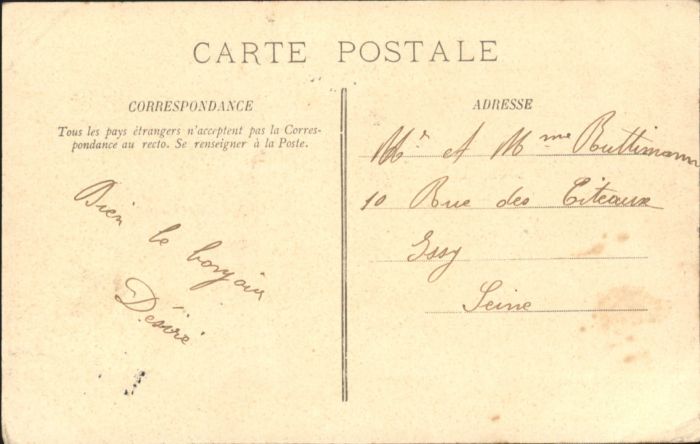 CARTE POSTALE
CORRESPONDANCE
Tous les pays étrangers n'acceptent pas la Corres-
pondance au recto. Se renseigner à la Poste.
Bien le bonjour
Désiré
ADRESSE
Mr et Mme Ruttimann
10 Rue des Citeaux
Issy
Seine